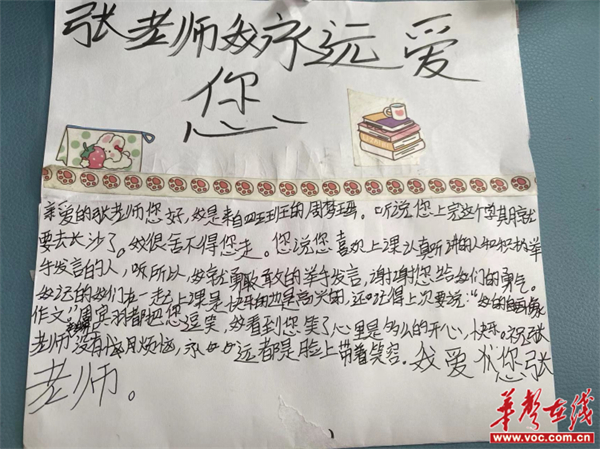 张老师我永远爱
您
亲爱的张老师您好,我是来自四班的周梦。听说您上完这个学期就
要去长沙了。我很舍不得您走。您说您喜欢上课认真听讲的人和积极举
手发言的人,所以,我就勇敢的举手发言,谢谢您给我们的勇气。
我记的我们在一起上课是快乐的也是高兴的,还记得上次要说:“我的自画像
作文”周宾羽都把您逗笑,我看到您笑了心里是多么的开心,快乐。祝张
老师没有烦恼,永远都是脸上带着笑容。我爱您张
老师。
华声在线
www.voc.com.cn